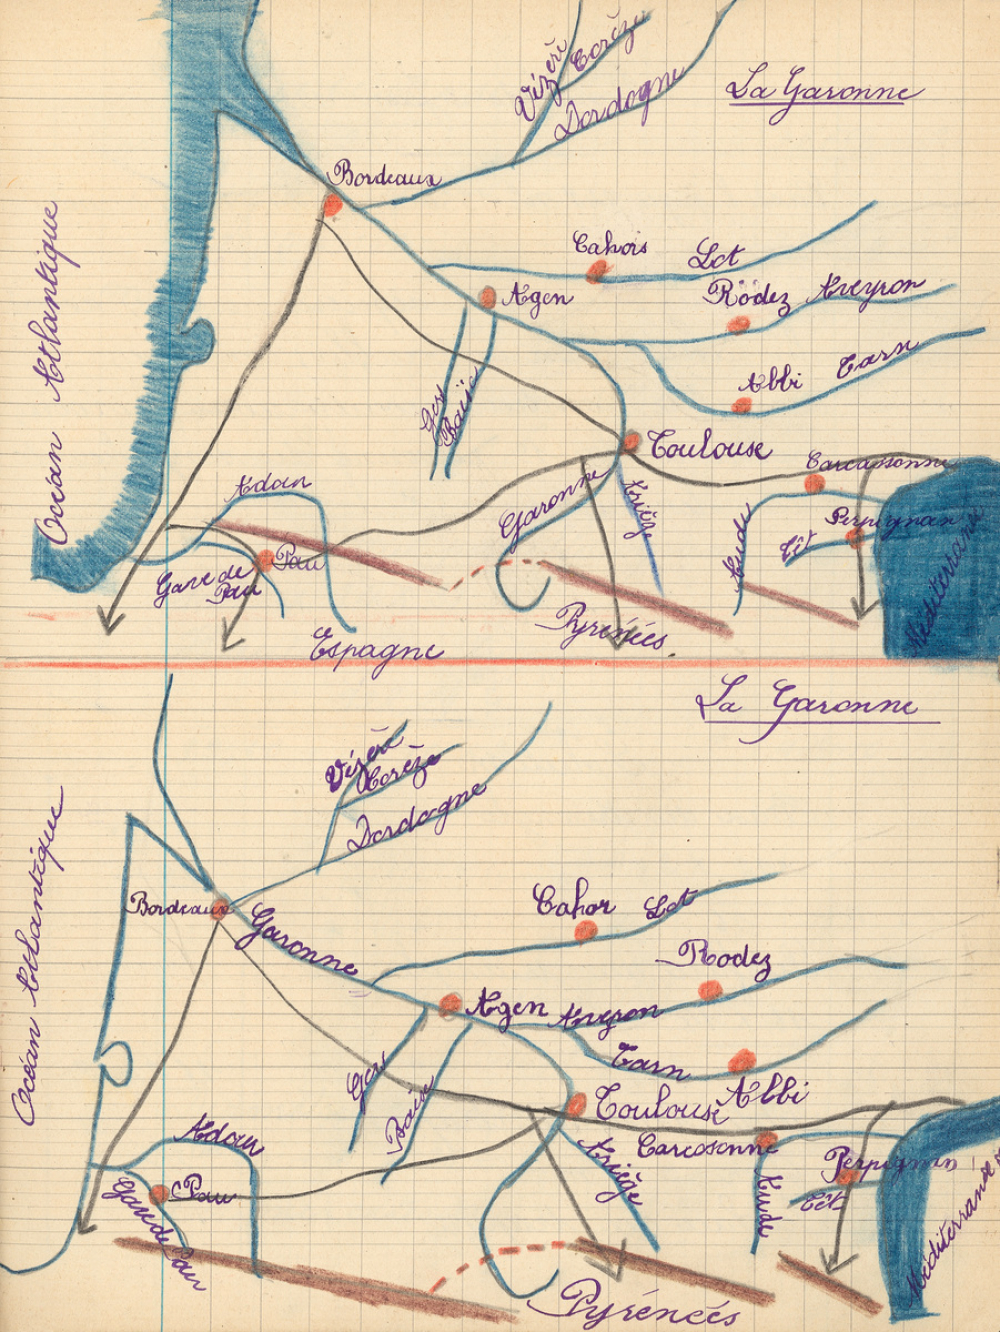 La Garonne
Vézère
Corèze
Dordogne
Bordeaux
Océan Atlantique
Cahors
Lot
Agen
Rodez
Aveyron
Albi
Tarn
Gers
Baïse
Toulouse
Carcassonne
Adour
Garonne
Ariège
Aude
Perpignan
Têt
Pau
Gave de
Pau
Méditerranée
Pyrénées
Espagne
La Garonne
Vézère
Corèze
Dordogne
Océan Atlantique
Bordeaux
Garonne
Cahor
Lot
Rodez
Agen
Aveyron
Tarn
Albi
Gers
Baïse
Toulouse
Carcosonne
Adour
Ariège
Aude
Perpignan
Têt
Pau
Gave de Pau
Méditerranée
Pyrénées